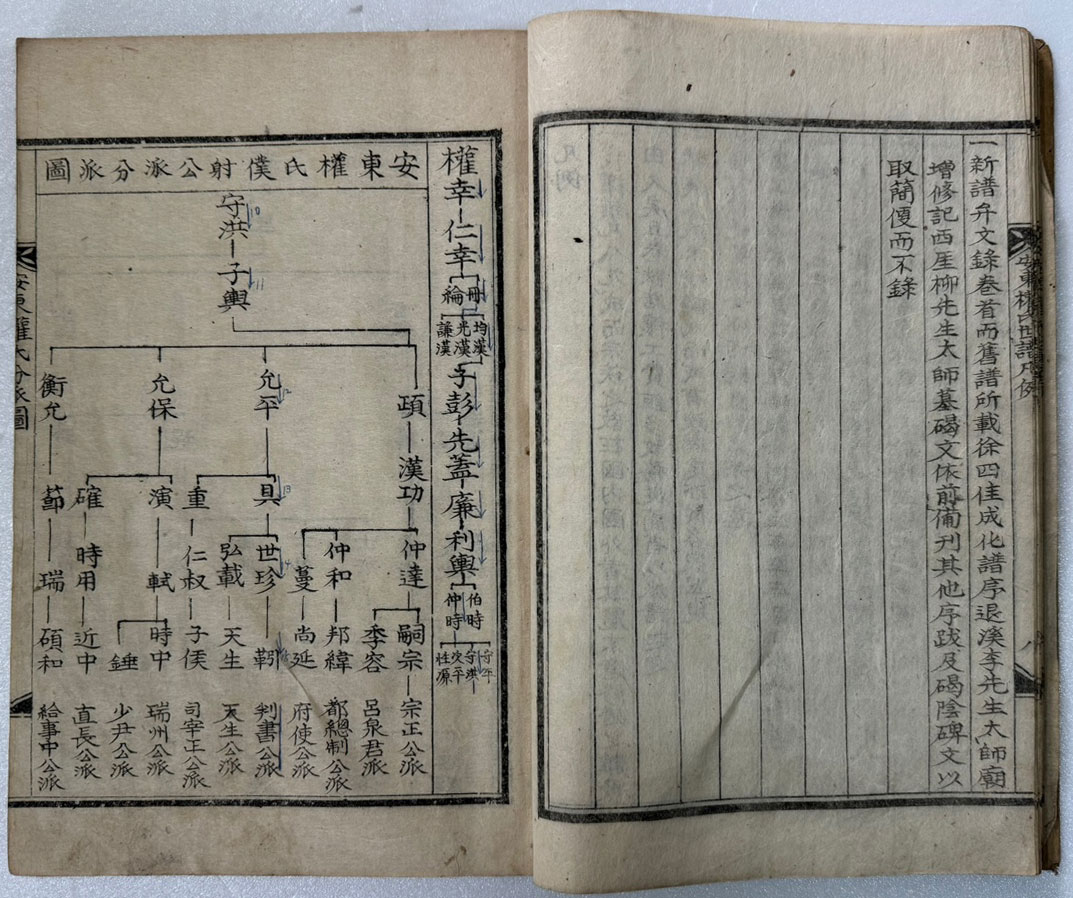 一新譜弁文錄卷首而舊譜所載徐四佳成化譜序退溪李先生太師廟
增修記西厓柳先生太師墓碣文依前備刊其他序跋及碣陰碑文以
取簡便而不錄
安東權氏世譜凡例
八
權幸 仁幸 冊 綸 均漢 光漢 謙漢 子彭 先蓋 廉 利輿 伯時 仲時 守平 守洪
安東權氏僕射公派分派圖
守洪 子輿
頙 漢功 仲達 嗣宗 宗正公派
李容 呂泉君派
仲和 邦緯 都總制公派
蔓 尚延 府使公派
允平 具 世珍 靷 判書公派
弘載 天生 天生公派
重 仁叔 子侯 司宰正公派
允保 演 軾 時中 瑞州公派
錘 少尹公派
確 時用 近中 直長公派
衡允 節 瑞 碩和 給事中公派
安東權氏分派圖
10
11
12
13
14